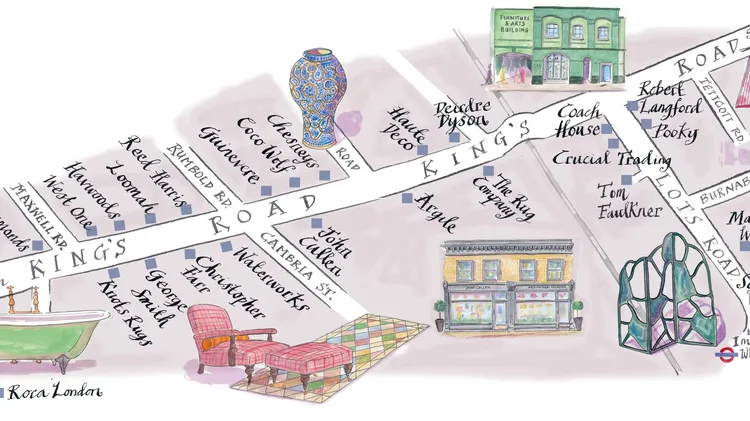 FURNITURE
& ARTS
BUILDING
ROAD
KING'S
ROAD
KING'S
Robert
Langford
Pooky
TETCOTT RD
Coach
House
Crucial Trading
Tom
Faulkner
LOTS ROAD
BURNAB
Deirdre
Dyson
Haute
Deco
ROAD
Chesneys
Coco Wolf
Guinevere
RUMBOLD RD.
Reed Harris
Loomah
Harwoods
West One
MAXWELL RD.
monds
Knots Rugs
George
Smith
Christopher
Farr
Waterworks
CAMBRIA ST.
John
Cullen
Argile
The Rug
Company
JOHN CULLEN
Roca London